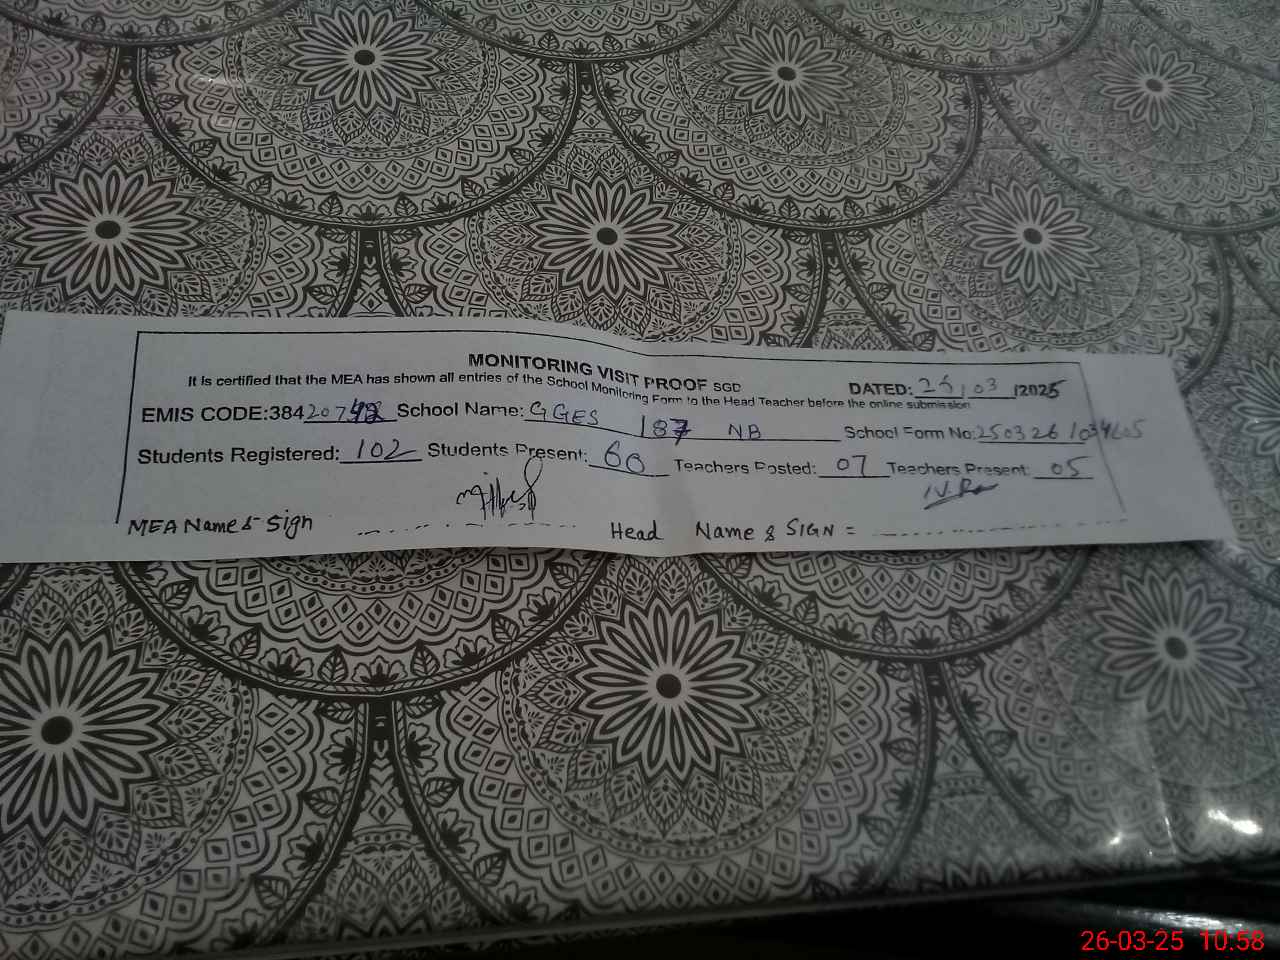 MONITORING VISIT PROOF SGD
It is certified that the MEA has shown all entries of the School Monitoring Form to the Head Teacher before the online submission
DATED: 26/03/2025
EMIS CODE:384207 School Name: GGES 187 NB School Form No:
Students Registered: 102 Students Present: 60 Teachers Posted: 07 Teachers Present: 05
MEA Name & Sign Head Name & SIGN =
26-03-25 10:58